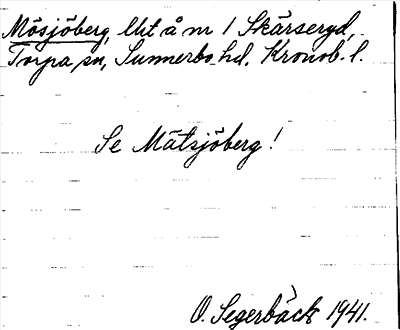 Mösjöberg, lht å nr 1 Skärseryd,
Torpa sn, Sunnerbo hd, Kronob. l.
Se Mätsjöberg!
O. Segerbäck 1941.